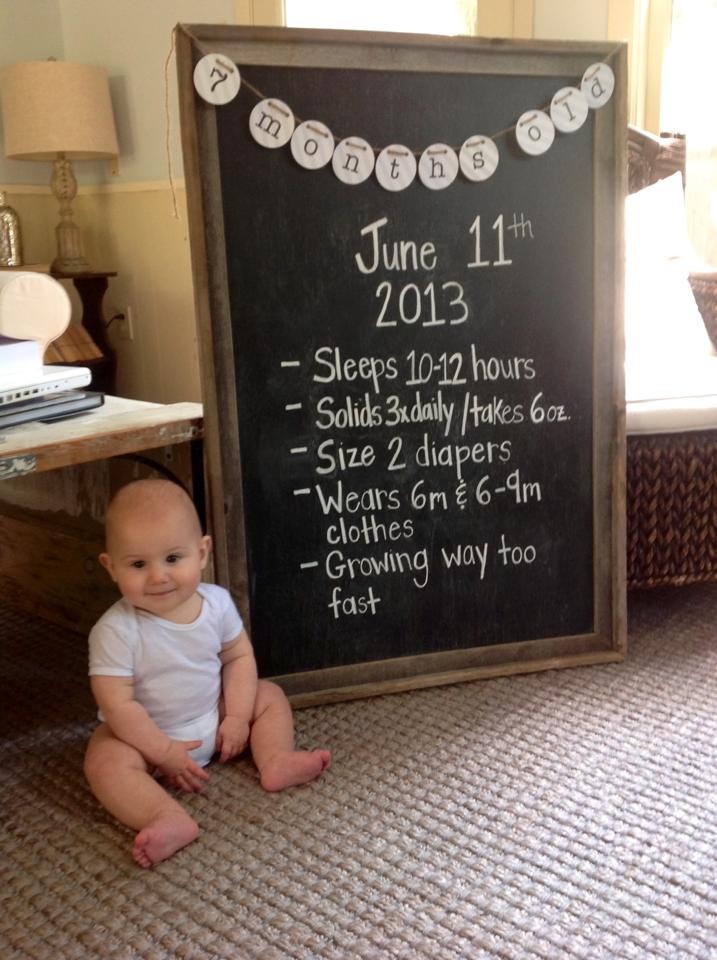 7 months old
June 11th
2013
- Sleeps 10-12 hours
- Solids 3x daily / takes 6 oz.
- Size 2 diapers
- Wears 6m & 6-9m
clothes
- Growing way too
fast